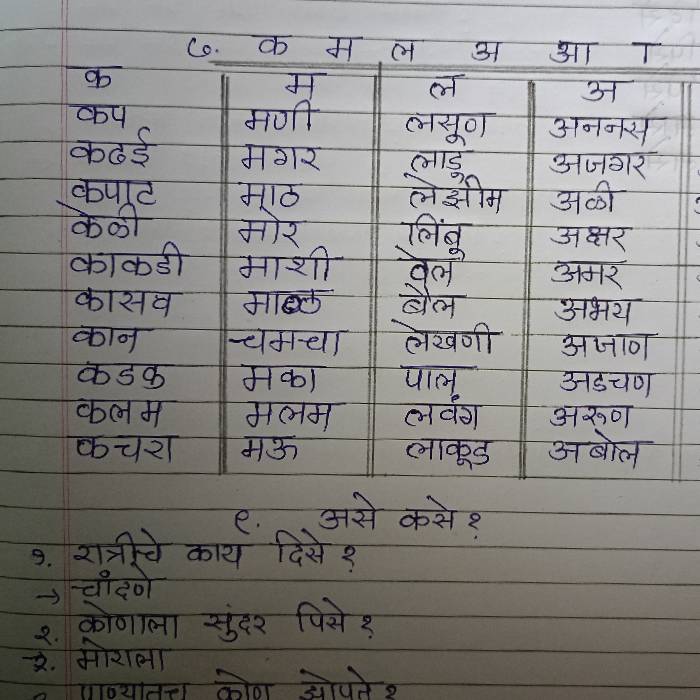 ७. क म ल अ आ ा
क म ल अ
कप मणी लसूण अननस
कढई मगर लाडू अजगर
कपाट माठ लेझीम अळी
केळी मोर लिंबू अक्षर
काकडी माशी वेल अमर
कासव माळ बैल अभय
कान चमचा लेखणी अजाण
कडक मका पाल अडचण
कलम मलम लवंग अरुण
कचरा मऊ लाकूड अबोल
९. असे कसे?
१. रात्रीचे काय दिसे?
→ चांदणे
२. कोणाला सुंदर पिसे?
→ मोराला
पाण्यातच कोण झोपते?